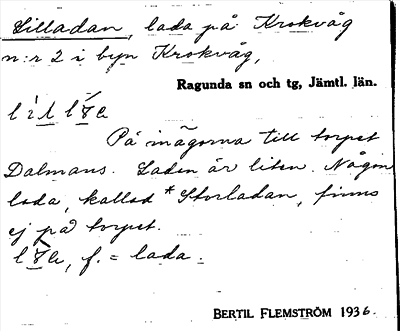 Lilladan, lada på Krokvåg
n:r 2 i byn Krokvåg,
Ragunda sn och tg, Jämtl. län.
På inägorna till torpet
Dalmans. Ladan är liten. Någon
lada, kallad *Storladan, finns
ej på torpet.
f. = lada.
BERTIL FLEMSTRÖM 1936.